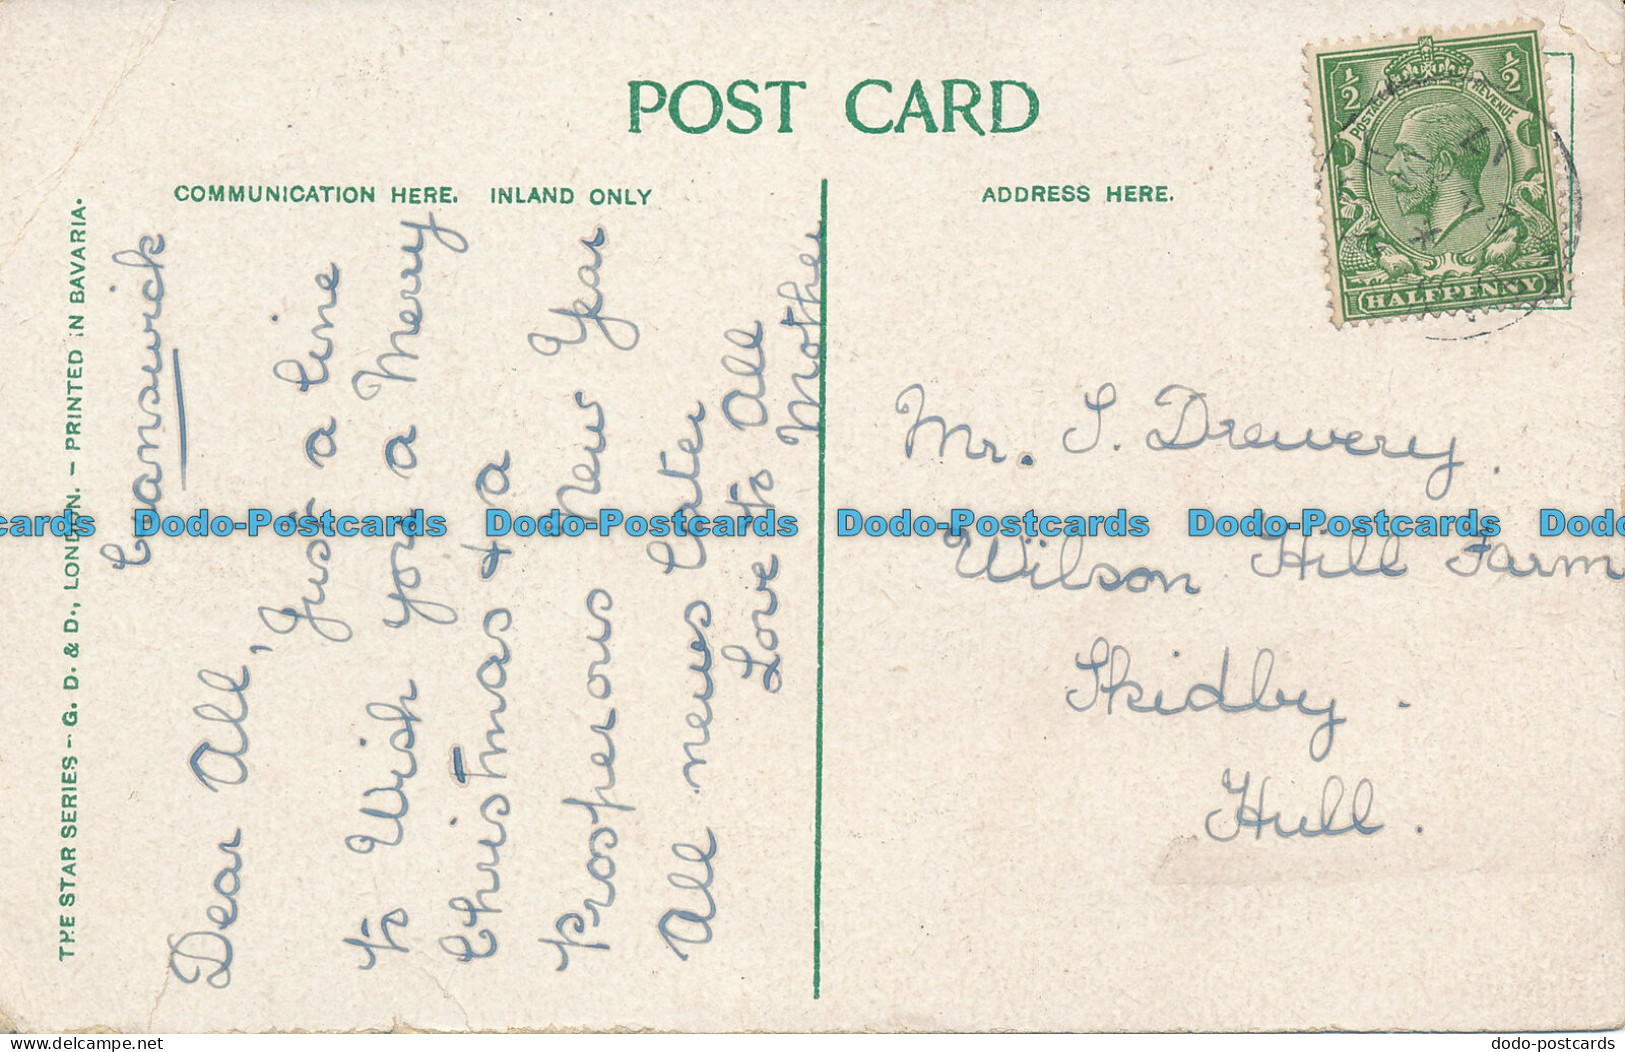 POST CARD
COMMUNICATION HERE. INLAND ONLY
ADDRESS HERE.
THE STAR SERIES - G. D. & D., LONDON. - PRINTED IN BAVARIA.
Canswick
Dear All,
Just a line
to Wish you a Merry
Christmas & a
prosperous New Year
All news Later
Love to All
Mother
½ ½
POSTAGE REVENUE
HALFPENNY
Mr. S. Drewery.
Wilson Hill Farm
Skidby.
Hull.
cards Dodo-Postcards Dodo-Postcards Dodo-Postcards Dodo-Postcards Dodo
delcampe.net
dodo-postcards